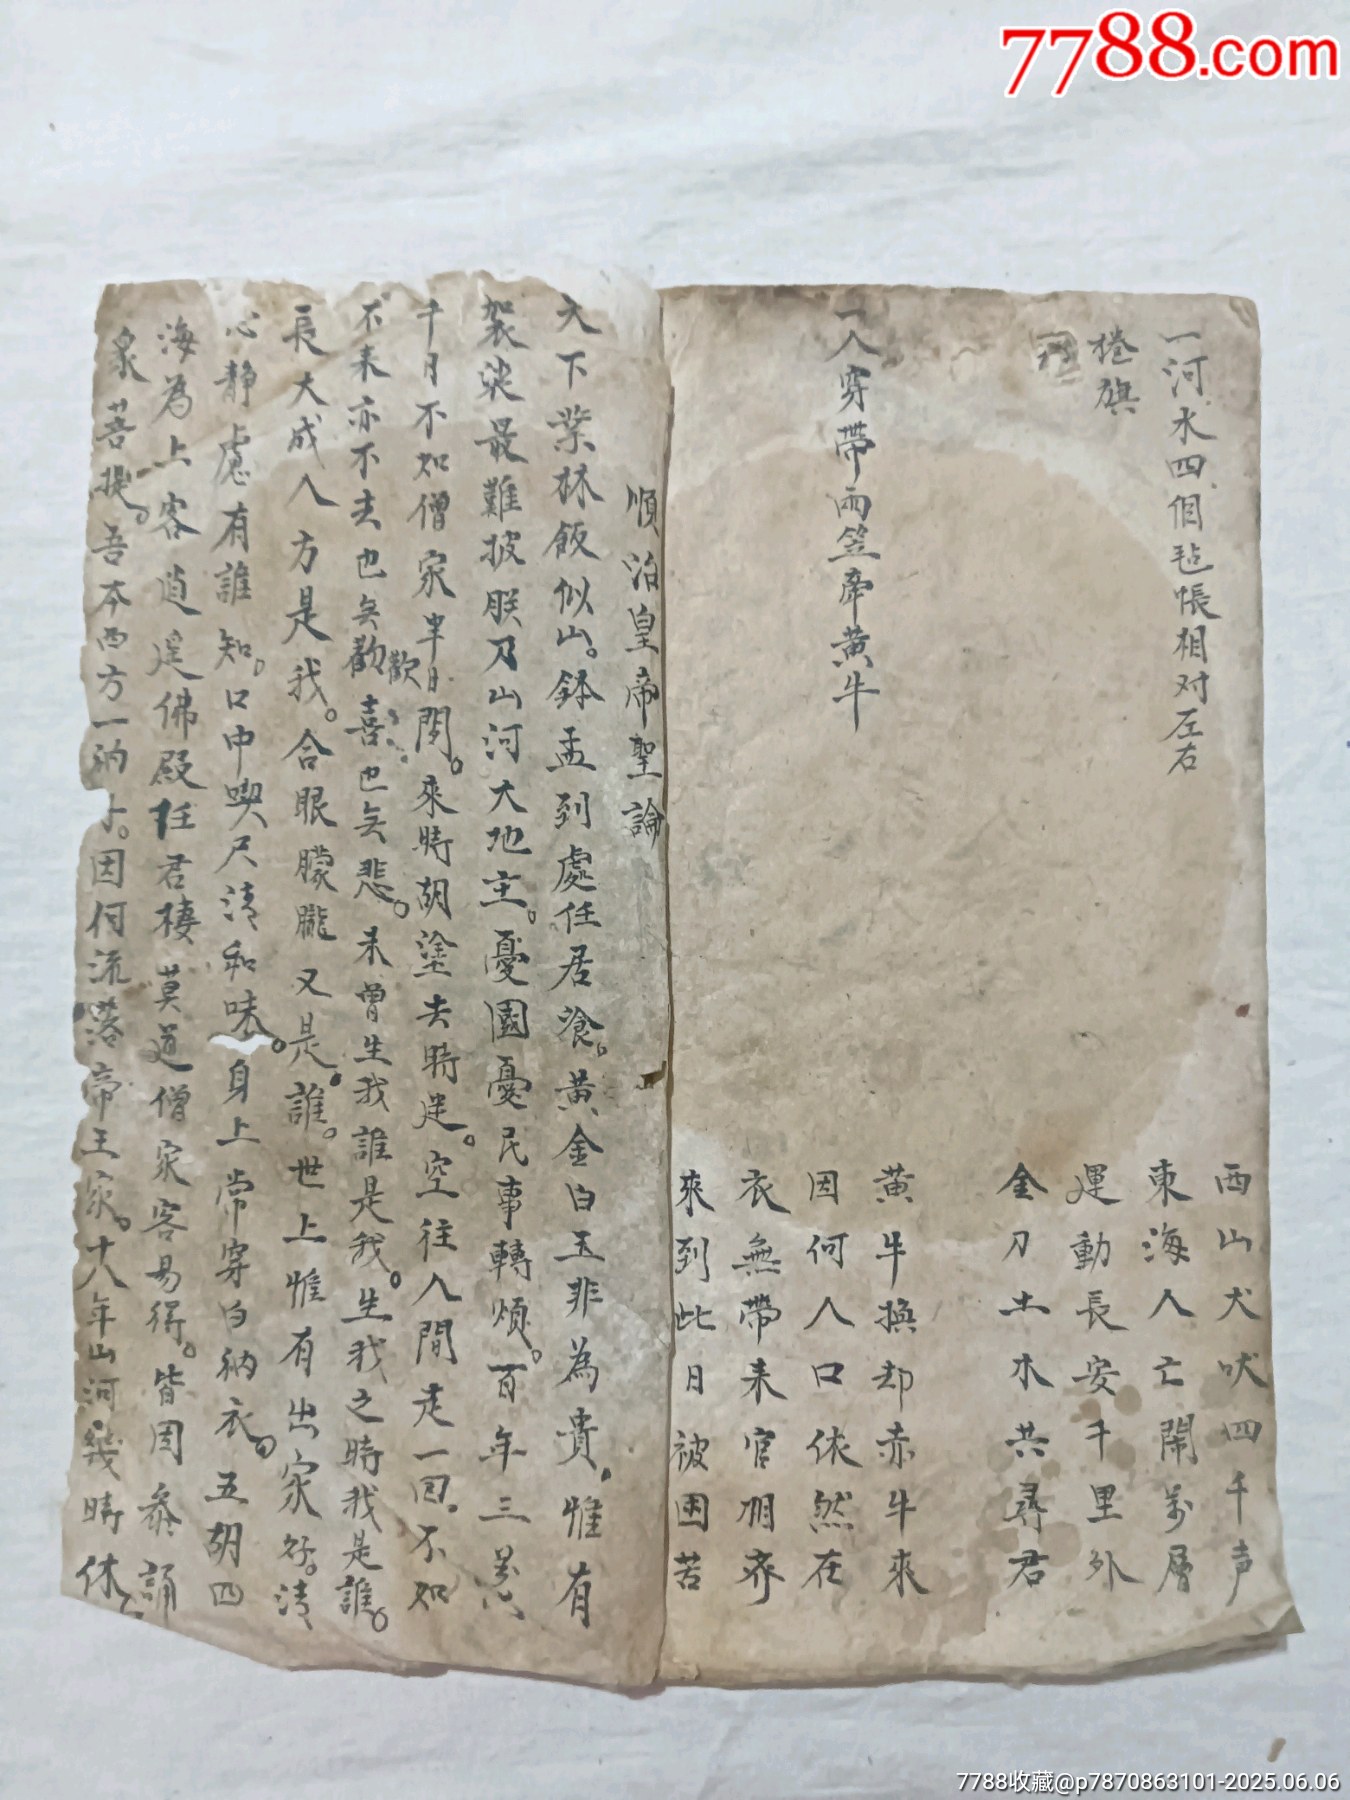 7788.com
一河水四個毡帳相对左右
捲旗
一人穿帶雨笠牽黄牛
西山犬吠四千声
東海人亡鬧万層
運動長安千里外
金刀土木共尋君
黄牛換却赤牛來
因何人口依然在
衣無帶来官相齐
來到此日被困苦
順治皇帝聖論
天下業林飯似山。鉢盂到處任居飡。黄金白玉非為貴。惟有
袈裟最難披朕乃山河大地主。憂國憂民事轉煩。百年三萬六
千日不如僧家半日閒。來時胡塗去時迷。空往人間走一回。不如
不来亦不去也無歡喜也無悲。未曾生我誰是我。生我之時我是誰。
歡
長大成人方是我。合眼朦朧又是誰。世上惟有出家好。清
心静慮有誰知。口中喫尺清和味。身上常穿白衲衣。五胡四
海為上客逍遥佛殿任君棲莫道僧家容易得。皆因參誦
衆菩提。吾本西方一衲子。因何流落帝王家。十八年山河幾時休
7788收藏@p7870863101-2025.06.06